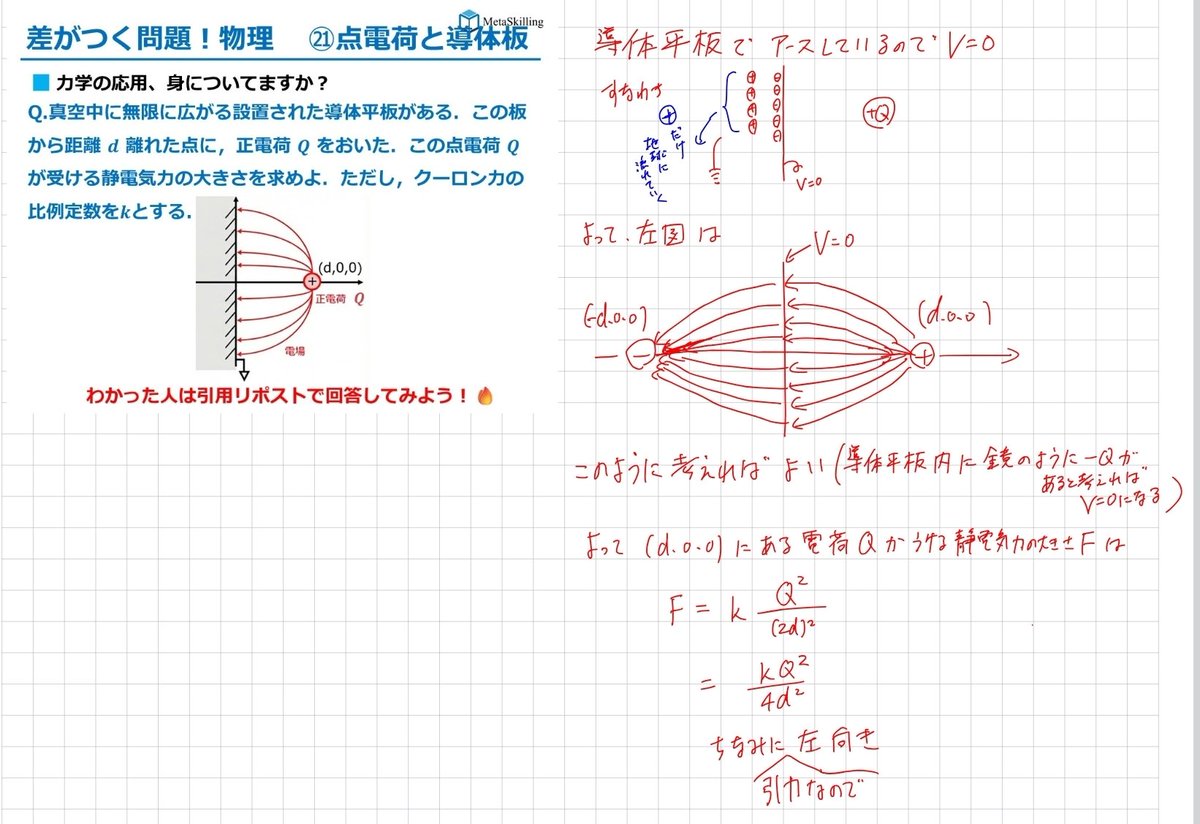 MetaSkilling
差がつく問題！物理 ㉑点電荷と導体板
■ 力学の応用、身についてますか？
Q.真空中に無限に広がる設置された導体平板がある．この板
から距離 d 離れた点に，正電荷 Q をおいた．この点電荷 Q
が受ける静電気力の大きさを求めよ．ただし，クーロン力の
比例定数をkとする．
(d,0,0)
+
正電荷 Q
電場
わかった人は引用リポストで回答してみよう！🔥
導体平板で アースしているので V=0
すなわち
⊕だけ
地球に
流れていく
⊕ ⊖
⊕ ⊖
⊕ ⊖
⊕ ⊖
⊖
+Q
V=0
よって、左図は
V=0
(-d.0.0)
(d.0.0)
−
+
このように考えればよい(導体平板内に鏡のように-Qが
あると考えれば
V=0になる)
よって (d.0.0)にある電荷Qがうける静電気力の大きさFは
F = k Q²/(2d)²
= kQ²/4d²
ちなみに左向き
引力なので